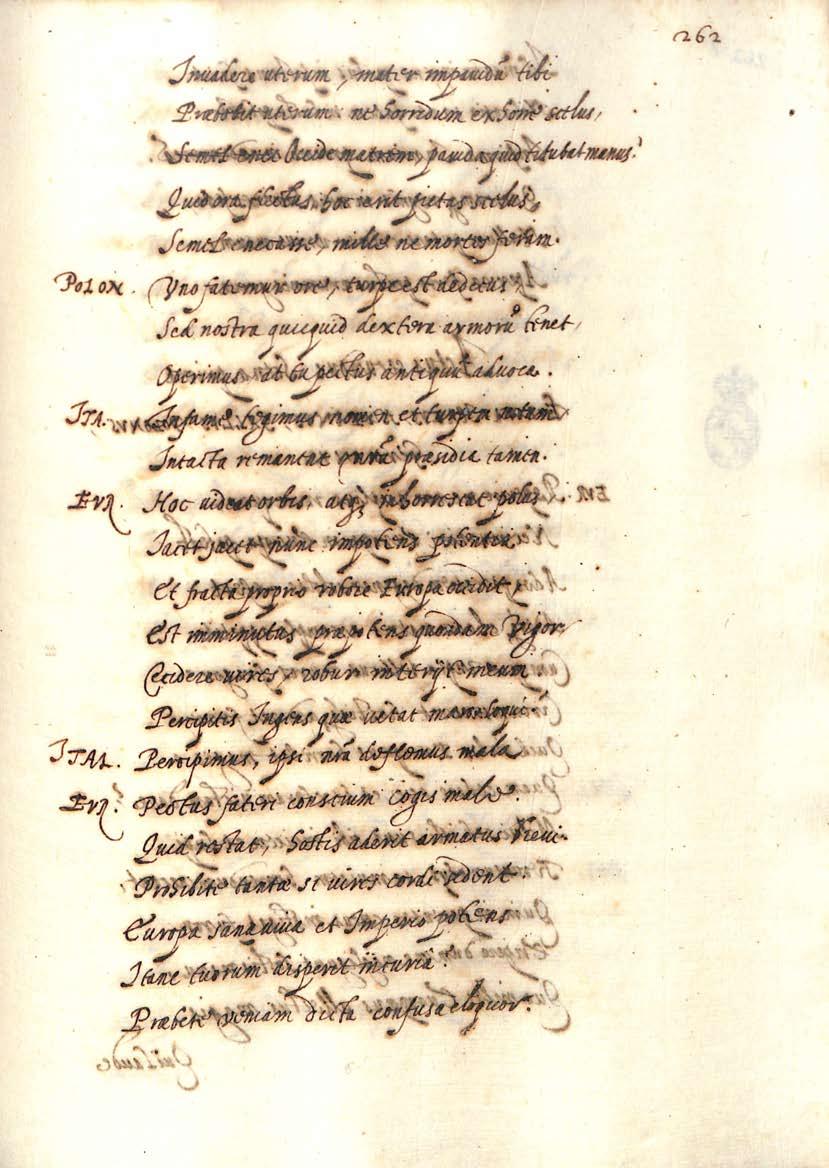 262
Invadere uterum, mater impavidũ tibi
Præbebit uterum: ne horridum exhorre scelus,
Semel enec Occide matrem, pavida quid titubat manus?
Quid ora flectus, hoc erit pietas scelus,
Semel enecasse, mille ne mortes feram.
POLON. Uno fatemur ore, turpe est dedecus,
Sed nostra quicquid dextera armorũ tenet,
Operimus, at tu pectus antiquũ advoca.
ITA. Infame tegimus nomen et turpem notam,
Intacta remaneat nrã præsidia tamen.
EUR. Hoc videat orbis, atq; inhorrescat polus
Jacet jacet nunc impotens potentia
Et fracta proprio robore Europa occidit,
Est imminutus præpotens quondam vigor,
Cecidere vires, robur interijt meum.
Percipitis Ingens quæ vetat mæror loqui?
ITAL. Percipimus, ipsi nrã deflemus mala
EUR. Pectus fateri conscium cogis male.
Quid restat, hostis aderit armatus
Prohibete tantæ si vires cordi sedent.
Europa sana et Imperio potens
Itane tuorum disperit incuria?
Præbete veniam dicta confusa eloquor.